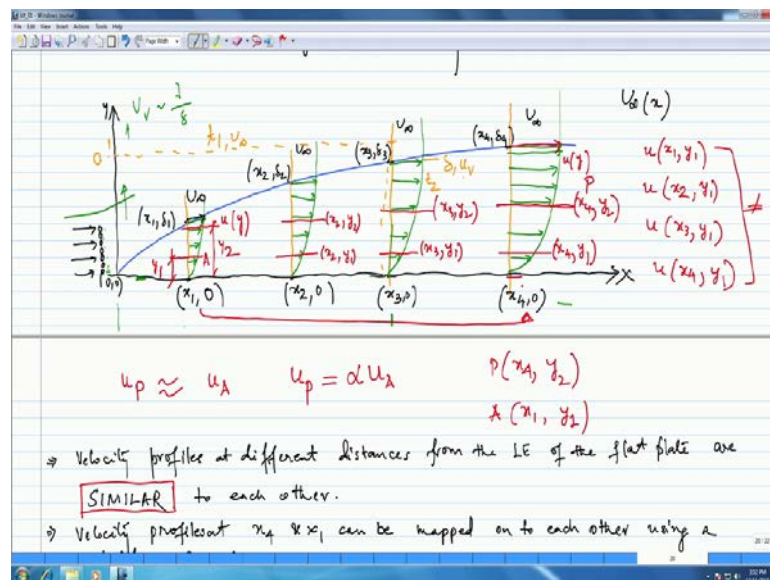 File Edit View Insert Actions Tools Help
Page Width
y
U∞
U∞
U∞
U∞
U∞(x)
t1, u∞
(x1, δ1)
(x2, δ2)
(x3, δ3)
(x4, δ4)
δ, uv
t2
u(y)
u(y)
P
A
y1
y2
(x2, y2)
(x3, y2)
(x4, y2)
(x2, y1)
(x3, y1)
(x4, y1)
(0,0)
(x1, 0)
(x2, 0)
(x3, 0)
(x4, 0)
X
u(x1, y1)
u(x2, y1)
u(x3, y1)
u(x4, y1)
≠
uP ≈ uA uP = αUA P(x4, y2)
A(x1, y2)
⇒ Velocity profiles at different distances from the LE of the flat plate are
SIMILAR to each other.
⇒ Velocity profiles at x4 & x1 can be mapped on to each other using a
20 / 22
20
3:52 PM